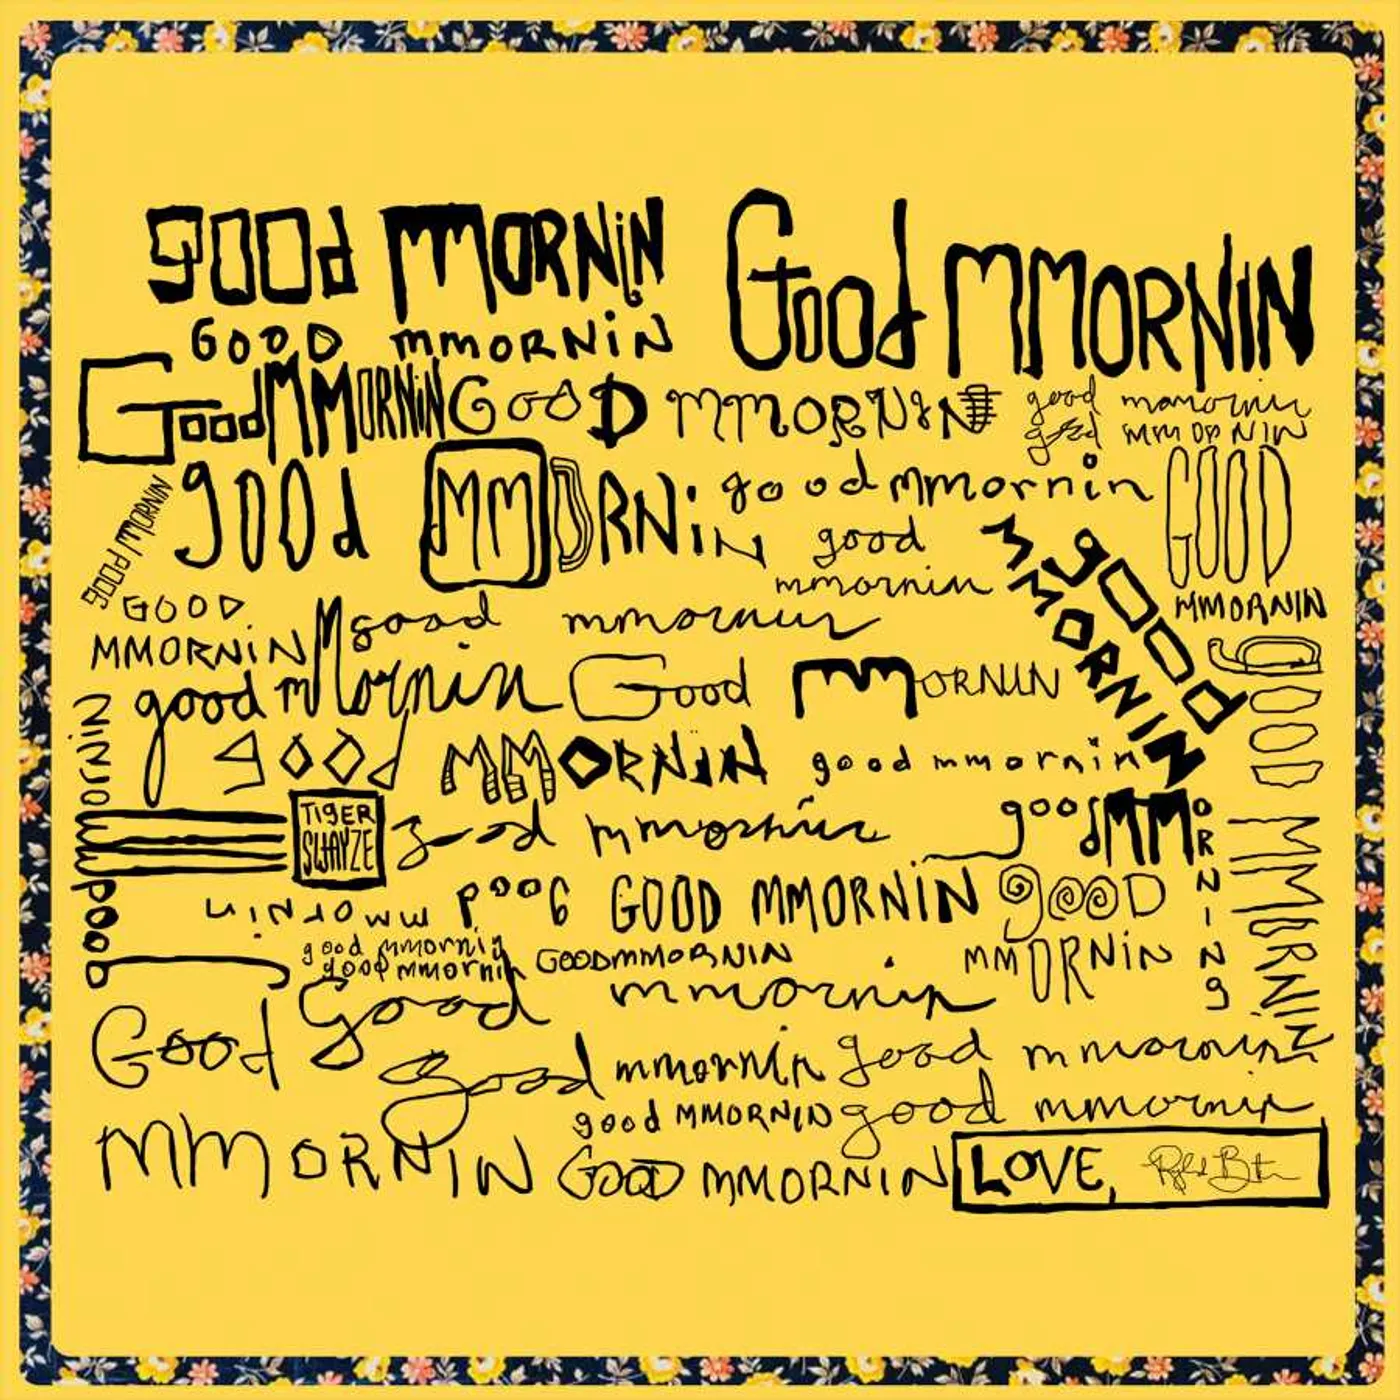 good MMORNiN
Good MMORNIN
GOOD mmORNiN
Good MMORNiN
GOOD MMORNIN
good mmornin
good MMORNIN
good MMORNiN
good mmornin
GOOD
MMORNIN
good MMORNIN
good
mmornin
good
MMORNIN
GOOD
MMORNiN
good mmornin
good mMornin
Good MMORNIN
good MMORNIN
good mmornin
GOOD MMORNIN
good mmornin
TIGER
SWAYZE
good mmornin
good MMORNINg
good mmornin
GOOD MMORNiN
gooD
MMORNiN
good mmornin
good mmornin
GOODMMORNIN
good mmornin
Good
MMORNIN
good mmornin
good mmornin
good MMORNIN
good mmornin
GOOD MMORNIN
LOVE,